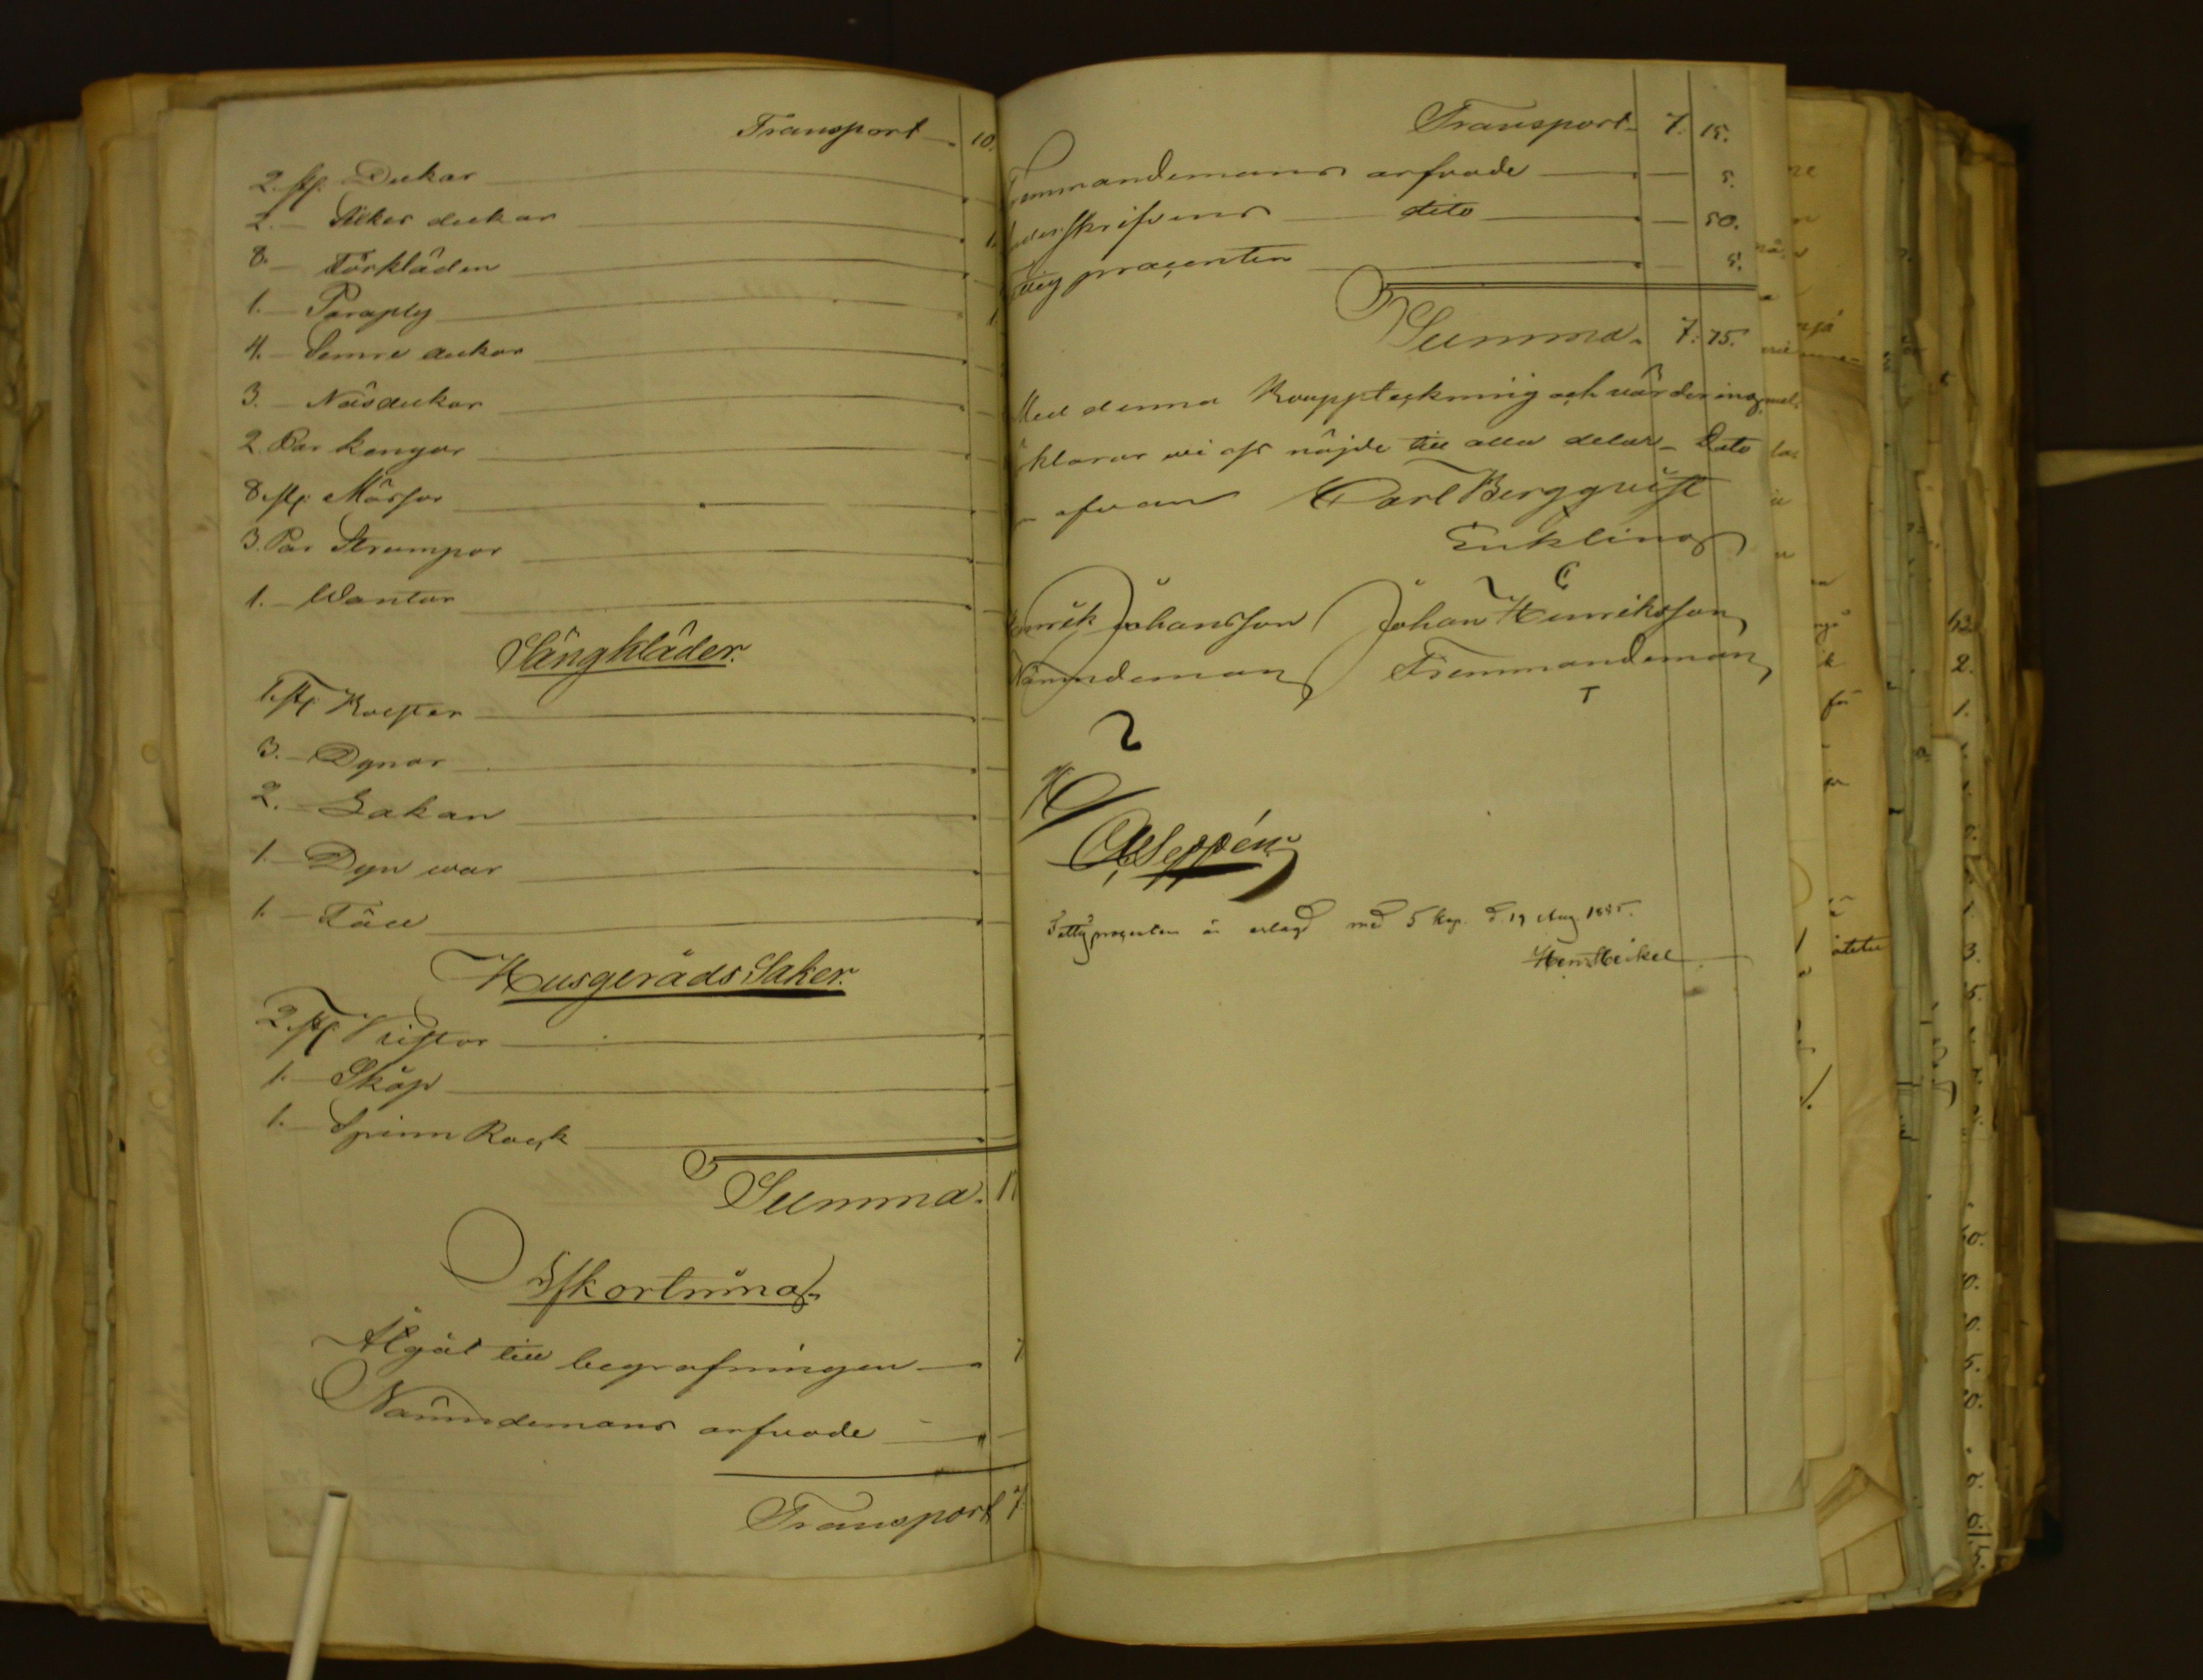 Transport 10.
2. st. Dukar
2. — Silkes dukar 1.
8. — Förkläden
1. — Paraply 1.
4. — Semre dukar
3. — Näsdukar
2. Par kängor
8. st. Mössor
3. Par Strumpor
1. — Wantar
Sängkläder.
1. st. Bolster
3. — Dynor
2. — Lakan
1. — Dyn war
1. — Fäll
Husgeråds Saker.
2. st. Kistor
1. — Skåp
1. — Spinn Rock
Summa. 11
Afkortning.
Åtgåt till begrafningen 7
Nämndemans arfvode
Transport 7.
Transport 7. 15.
Fremmandemans arfvode — 5.
skrifvens dito — 50.
procenten — 5.
Summa. 7: 75.
Med denna Bouppteckning och värdering
klarar vi oss nöjde till alla delar — Dato
ofvan Carl Bergqvist
Enkling
Henrik Johansson Johan Henriksson
Nämndeman Fremmandeman
T
Seppén
Fattigprocenten är erlagd med 5 kop. d. 19 Aug. 1885.